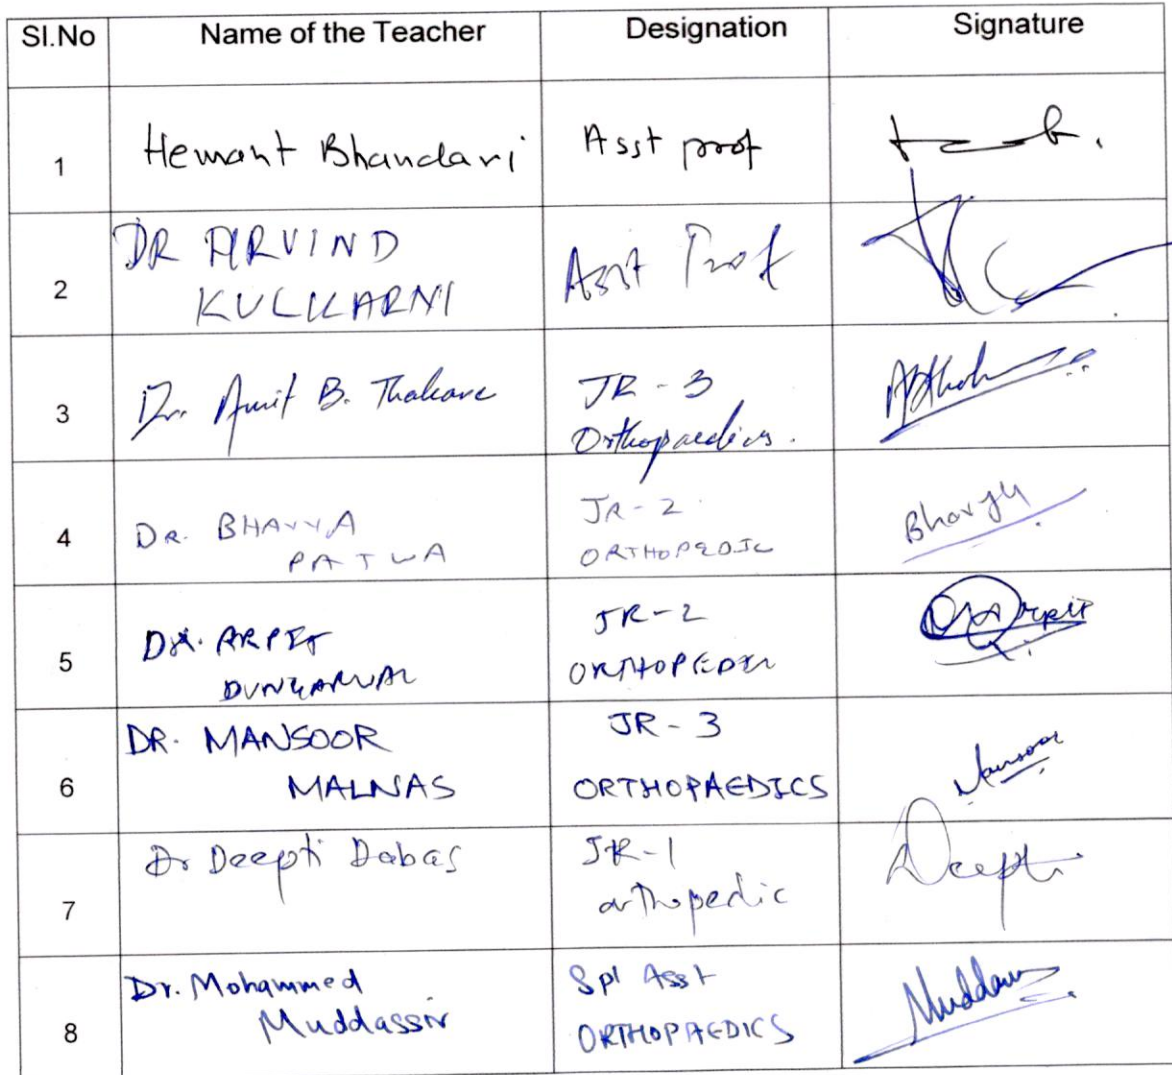 Sl.No Name of the Teacher Designation Signature
1 Hemant Bhandari Asst prof
2 DR ARVIND Asst Prof
KULKARNI
3 Dr. Amit B. Thakare JR - 3
Orthopaedics.
4 DR. BHAVYA JR-2
PATWA ORTHOPEDIC
Bhavya
5 DR. ARPIT JR-2
DUNGARWAL ORTHOPEDIC
Arpit
6 DR. MANSOOR JR - 3
MALNAS ORTHOPAEDICS
Mansoor
7 Dr Deepti Dabas JR-1
orthopedic
Deepti
8 Dr. Mohammed Spl Asst
Muddassir ORTHOPAEDICS